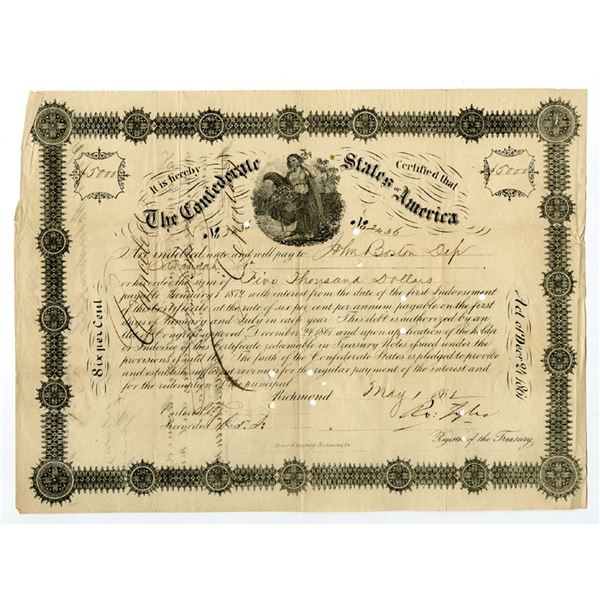 $5000
It is hereby Certified that
$5000
The Confederate States of America
No. 2436
No. 2436
Are indebted unto and will pay to John Boston Dep
or his order the sum of Five Thousand Dollars
payable January 1st 1872 with interest from the date of the first Indorsement
of this Certificate at the rate of six per cent per annum payable on the first
days of January and July in each year. This debt is authorized by an
Act of Congress approved December 24 1861 and upon application of the holder
or Indorsee of this Certificate redeemable in Treasury Notes issued under the
provisions of said law. The faith of the Confederate States is pledged to provide
and establish sufficient revenues for the regular payment of the interest and
for the redemption of the principal
Richmond May 1 1862
Entered
Recorded
Ro. Tyler
Register of the Treasury
Six per Cent
Act of Decr. 24, 1861
Cancelled